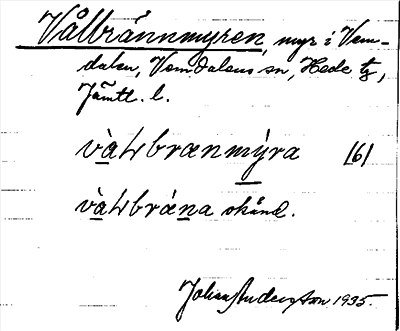 Vålbrännmyren, myr i Vem-
dalen, Vemdalens sn, Hede tg,
Jämtl. l.
vàLbrænmýra 161
vàLbrǽna okänd.
Johan Andersson 1935.